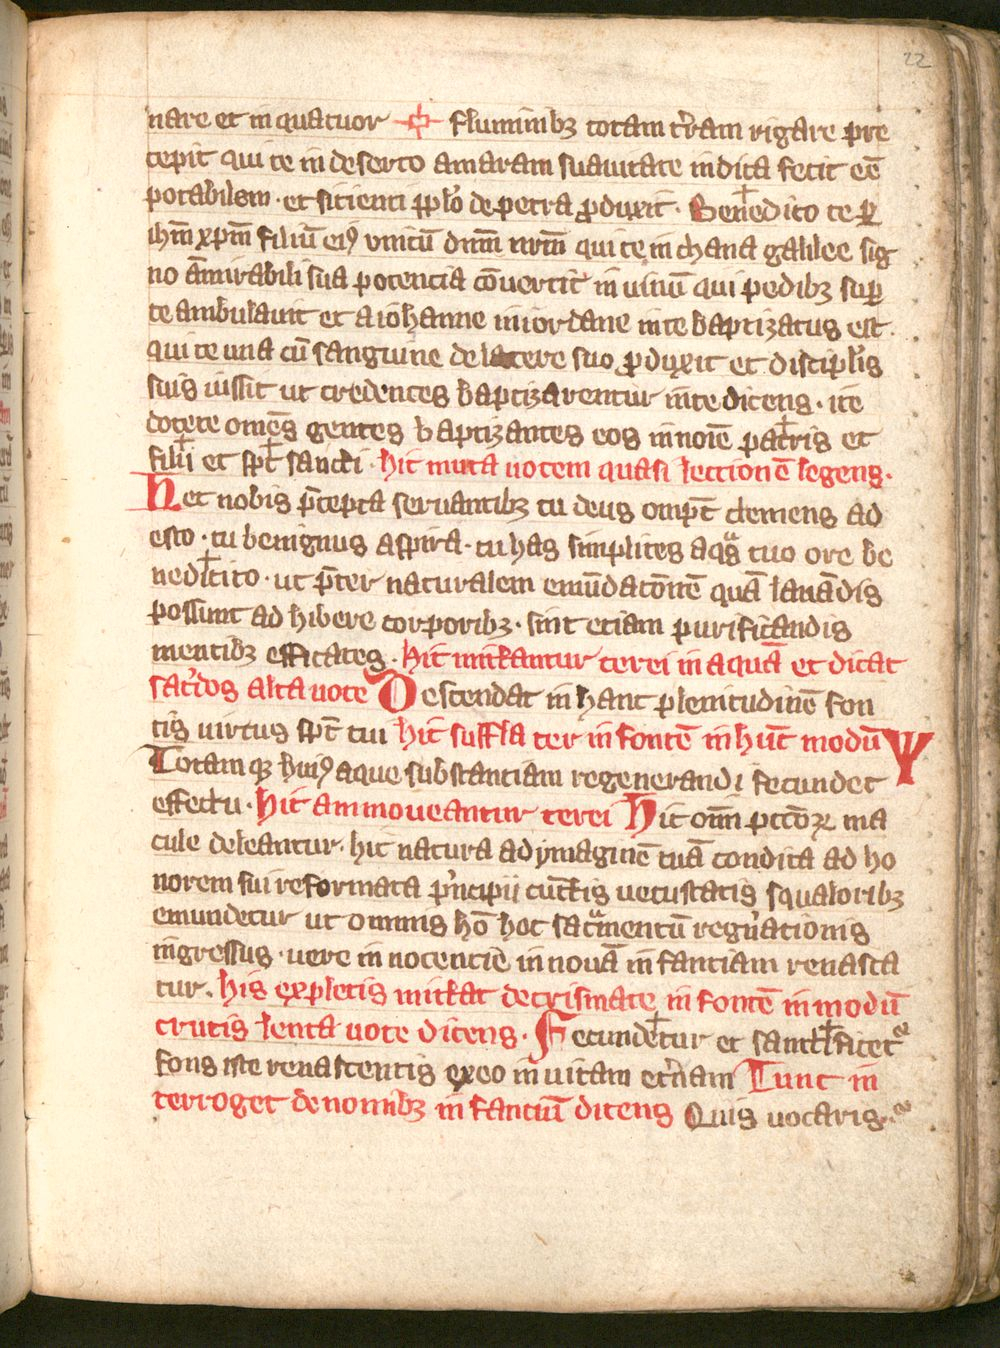 22
nare et in quatuor ✢ fluminibꝫ totam t̾ram rigare pre
cepit qui te in deserto amaram suauitate indita fecit eē
potabilem · et sicienti ꝓplo de petra ꝓduxit · Bene✝dico te ꝑ
ihm̄ xpm̄ filiū eiꝰ vnicū dnm̄ nr̄m qui te in chana galilee sig
no āmirabili sua potencia cōuertit in uinū qui pedibꝫ suꝑ
te ambulauit et a iohanne in iordane in te baptizatus est ·
qui te una cū sanguine de latere suo ꝓduxit et discipl̾is
suis iussit ut credentes baptizarentur in te dicens · ite
docete omēs gentes baptizantes eos in noīe pa✝tris et
fi✝lii et sp̄c✝ sancti · hic muta uocem quasi lectionē legens ·
Hec nobis p̄cepta seruantibꝫ tu deus omp̄c clemens ad
esto · tu benignus aspira · tu has simplices aqᷓs tuo ore be
ned✝icito · ut p̄ter naturalem emūdacōnē quā lauādis
possunt ad hibere corporibꝫ · sint etiam purificandis
mentibꝫ efficates · hic mittantur cerei in aquā et dicat
sac̾dos alta uoce Descendat in hanc plenitudinē fon
tis uirtus sp̄c tui hic suffla ter in fontē in hūc modū Ψ
Totam qꝫ huiꝰ aque substantiam regenerandi fecundet
effectu · hic ammoueantur cerei Hic om̄i pcc̄oꝝ ma
cule deleantur · hic natura ad ymaginē tuā condita ad ho
norem sui reformata pⁱncipii cunctis uetustatis squaloribꝫ
emundetur ut omnis hō hoc sacᷓmentū regn̾ationis
ingressus · uere in nocentie in nouā in fantiam renasca
tur · his expletis mittat de crismate in fontē in modū
crucis lenta uoce dicens · Fecunde✝tur et sancti✝ficetᷣ
fons iste renascentis exeo in uitam et̾nam Tunc in
terroget de nomībꝫ in fantiū dicens Quis uocaris ·ᷣ